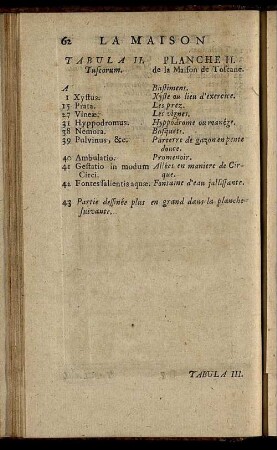 62 LA MAISON
TABULA II. PLANCHE II.
Tuscorum. de la Maison de Toscane.
A Bastiment.
1 Xystus. Xyste ou lieu d'exercice.
15 Prata. Les prez.
27 Vineæ. Les vignes.
31 Hyppodromus. Hyppodrome ou manége.
38 Nemora. Bosquets.
39 Pulvinus, &c. Parterres de gazon en pente
douce.
40 Ambulatio. Promenoir.
41 Gestatio in modum Allées en maniere de Cir-
Circi. que.
42 Fontes salientis aquæ. Fontaine d'eau jallissante.
43 Partie dessinée plus en grand dans la planche
suivante.
TABULA III.